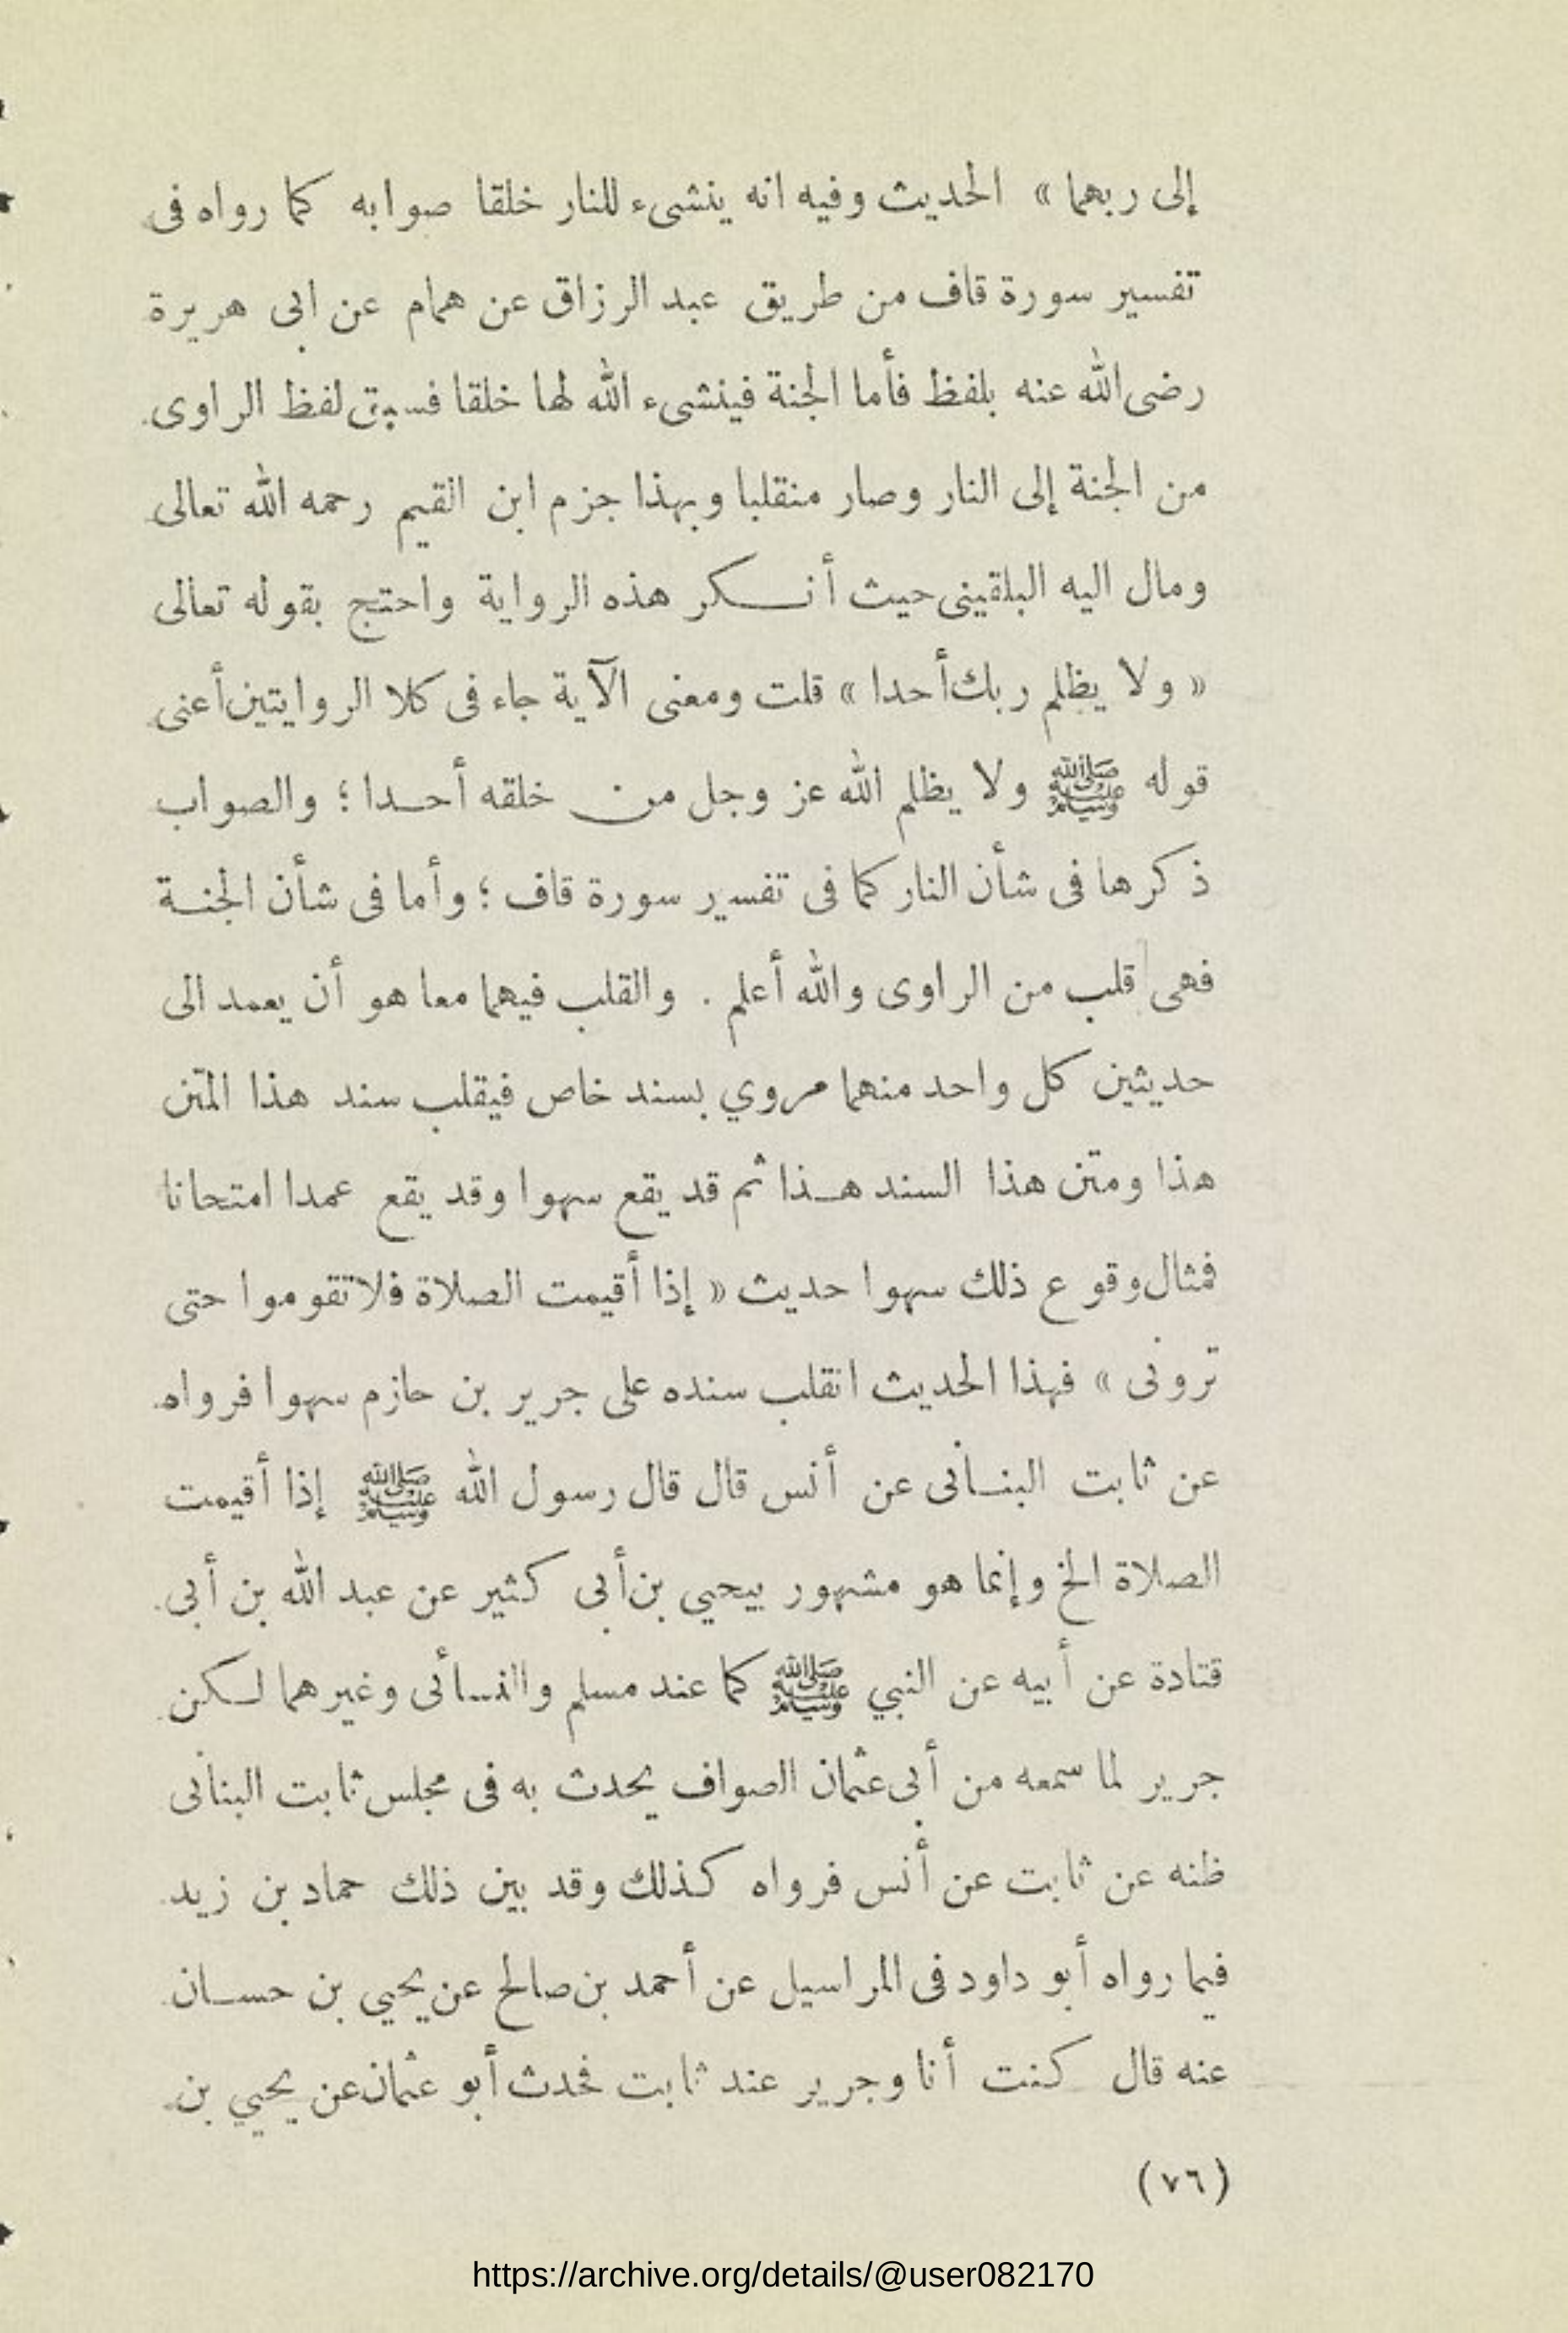 إلى ربهما » الحديث وفيه انه ينشىء للنار خلقا صوابه كما رواه فى
تفسير سورة قاف من طريق عبد الرزاق عن همام عن ابى هريرة
رضى الله عنه بلفظ فأما الجنة فينشىء الله لها خلقا فسبق لفظ الراوى
من الجنة إلى النار وصار منقلبا وبهذا جزم ابن القيم رحمه الله تعالى
ومال اليه البلقينى حيث أنكر هذه الرواية واحتج بقوله تعالى
« ولا يظلم ربك أحدا » قلت ومعنى الآية جاء فى كلا الروايتين أعنى
قوله ﷺ ولا يظلم الله عز وجل من خلقه أحدا ؛ والصواب
ذكرها فى شأن النار كما فى تفسير سورة قاف ؛ وأما فى شأن الجنة
فهى قلب من الراوى والله أعلم . والقلب فيهما معا هو أن يعمد الى
حديثين كل واحد منهما مروي بسند خاص فيقلب سند هذا المتن
هذا ومتن هذا السند هذا ثم قد يقع سهوا وقد يقع عمدا امتحانا
فمثال وقوع ذلك سهوا حديث « إذا أقيمت الصلاة فلا تقوموا حتى
ترونى » فهذا الحديث انقلب سنده على جرير بن حازم سهوا فرواه
عن ثابت البنانى عن أنس قال قال رسول الله ﷺ إذا أقيمت
الصلاة الخ وإنما هو مشهور بيحيي بن أبى كثير عن عبد الله بن أبى
قتادة عن أبيه عن النبي ﷺ كما عند مسلم والنسائى وغيرهما لكن
جرير لما سمعه من أبى عثمان الصواف يحدث به فى مجلس ثابت البنانى
ظنه عن ثابت عن أنس فرواه كذلك وقد بين ذلك حماد بن زيد
فيما رواه أبو داود فى المراسيل عن أحمد بن صالح عن يحيي بن حسان
عنه قال كنت أنا وجرير عند ثابت فحدث أبو عثمان عن يحيي بن
(٧٦)
https://archive.org/details/@user082170